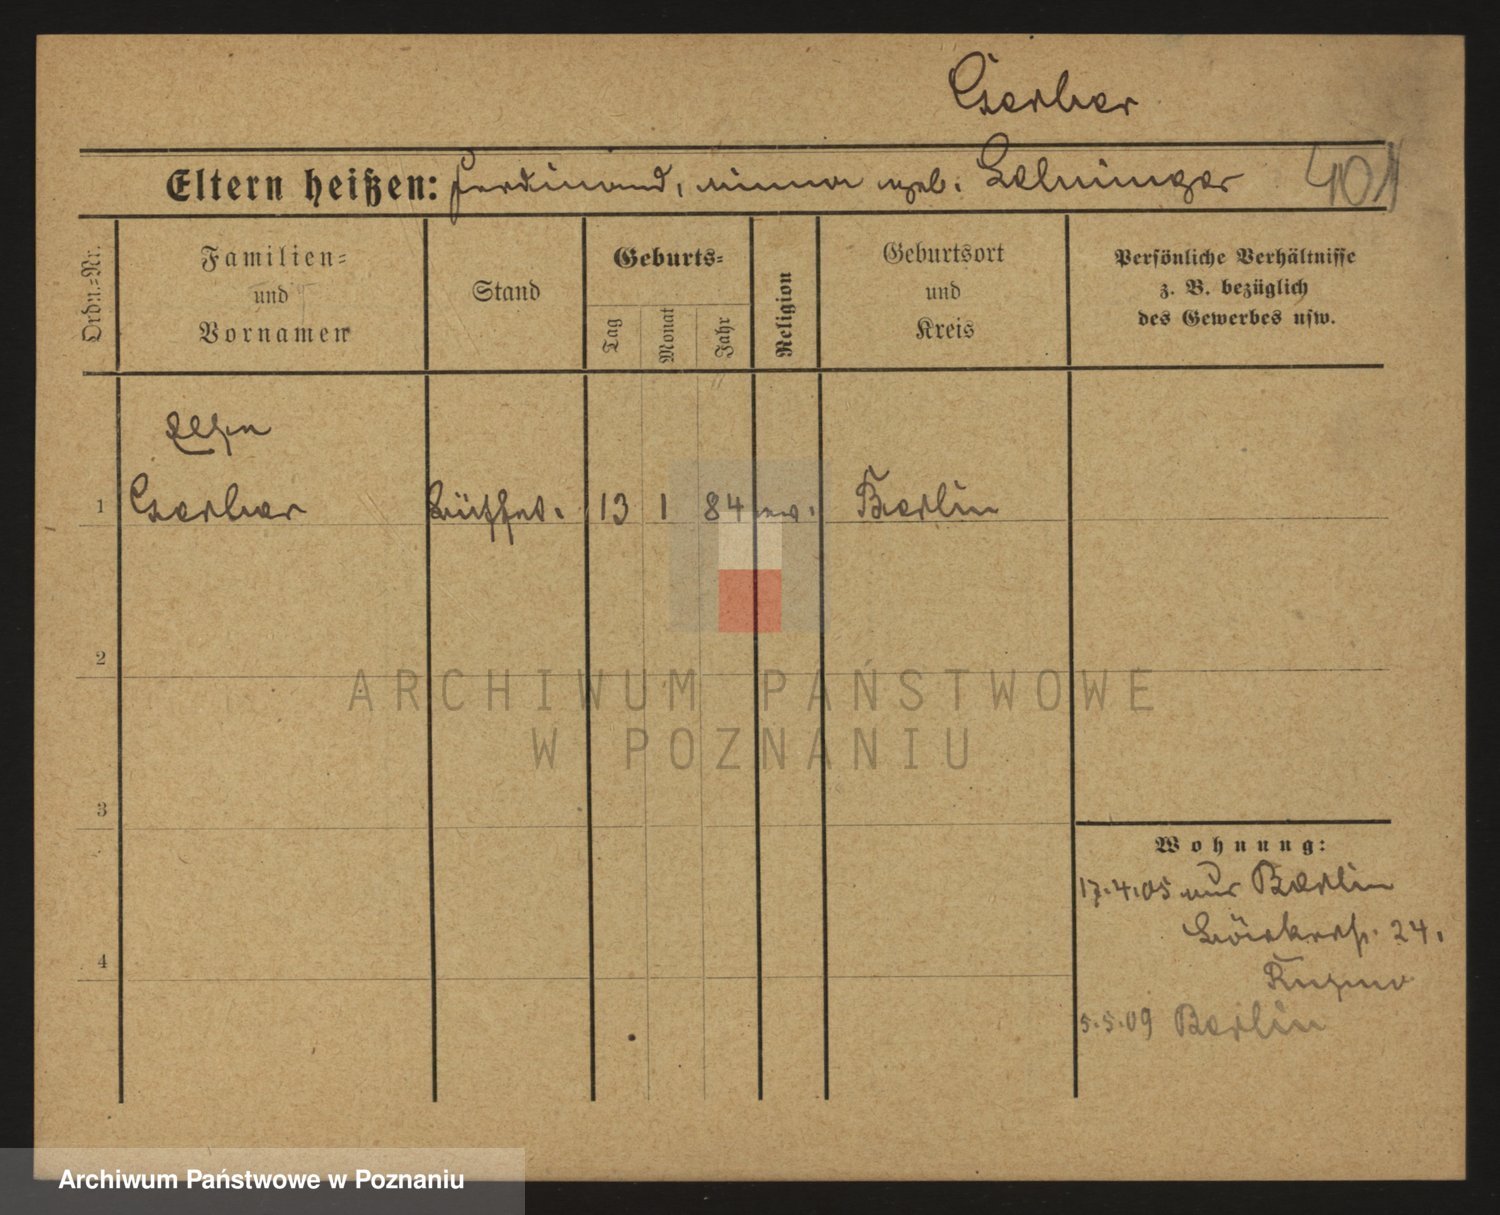 Gerber
Eltern heißen: Ferdinand, Minna geb. Lehninger 401
Ordn.=Nr.
Familien=
und
Vornamen
Stand
Geburts=
Tag
Monat
Jahr
Religion
Geburtsort
und
Kreis
Persönliche Verhältnisse
z. B. bezüglich
des Gewerbes usw.
1 Gerber 13 1 84 ev. Berlin
2
3
4
Wohnung:
17.4.05 aus Berlin
24.
5.5.09 Berlin
ARCHIWUM PAŃSTWOWE
W POZNANIU
Archiwum Państwowe w Poznaniu